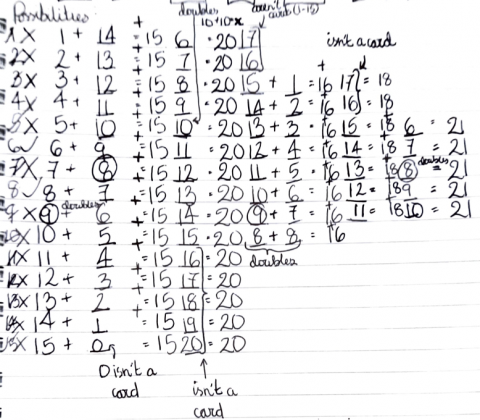 Possibilities
doubles
10+10=x
isn't a card
1X 1 + 14 = 15 + 6 = 20 17
2X 2 + 13 = 15 + 7 = 20 16
3X 3 + 12 = 15 + 8 = 20 15 + 1 = 16 + 17 = 18
4X 4 + 11 = 15 + 9 = 20 14 + 2 = 16 + 16 = 18
5X 5 + 10 = 15 + 10 = 20 13 + 3 = 16 + 15 = 18 6 = 21
6✓ 6 + 9 = 15 11 = 20 12 + 4 = 16 14 = 18 7 = 21
7X, 7 + 8 = 15 12 = 20 11 + 5 = 16 13 = 18 8 doubles = 21
8✓ 8 + 7 = 15 13 = 20 10 + 6 = 16 12 = 18 9 = 21
9X 9 + doubles 6 = 15 14 = 20 9 + 7 = 16 11 = 18 10 = 21
10X 10 + 5 = 15 15 = 20 8 + 8 = 16
doubles
11X 11 + 4 = 15 16 = 20
12X 12 + 3 = 15 17 = 20
13X 13 + 2 = 15 18 = 20
14X 14 + 1 = 15 19 = 20
15X 15 + 0 = 15 20 = 20
0 isn't a card
isn't a card